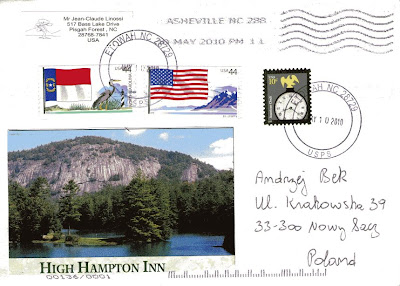 Mr Jean-Claude Linossi
517 Base Lake Drive
Pisgah Forest, NC
28768-7841
USA
ASHEVILLE NC 288
MAY 2010 PM 11
ETOWAH NC 28729
USPS
USA 44
44
ETOWAH NC 28729
10 2010
USPS
Andrzej Bek
Ul. Krakowska 39
33-300 Nowy Sącz
Poland
HIGH HAMPTON INN
00136/0001